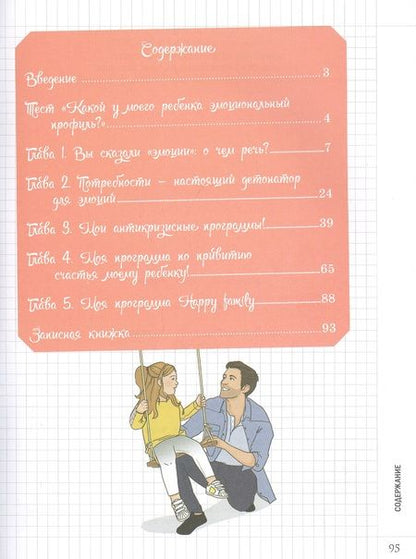 Содержание
Введение 3
Тест «Какой у моего ребенка эмоциональный
профиль?» 4
Глава 1. Вы сказали «эмоции»: о чем речь? 7
Глава 2. Потребности – настоящий детонатор
для эмоций 24
Глава 3. Мои антикризисные программы! 39
Глава 4. Моя программа по привитию
счастья моему ребенку! 65
Глава 5. Моя программа Happy family 88
Записная книжка 93
СОДЕРЖАНИЕ
95